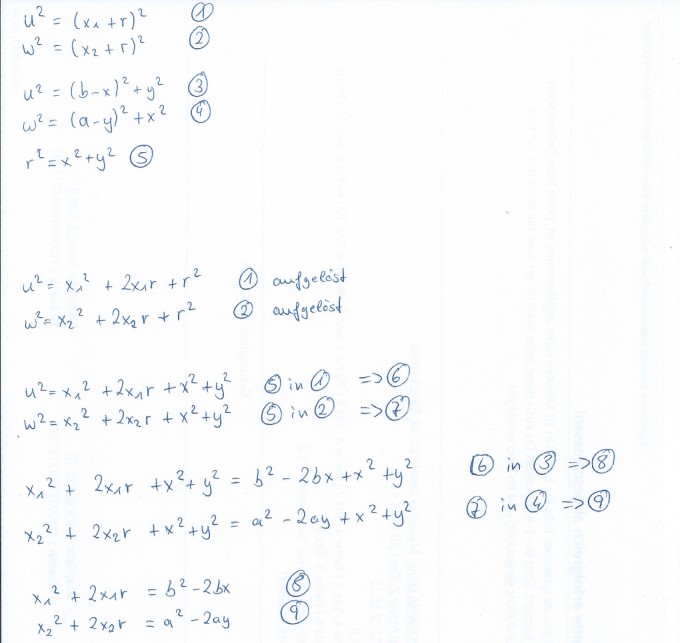 u² = (x₁ + r)² ①
w² = (x₂ + r)² ②
u² = (b-x)² + y² ③
w² = (a-y)² + x² ④
r² = x² + y² ⑤
u² = x₁² + 2x₁r + r² ① aufgelöst
w² = x₂² + 2x₂r + r² ② aufgelöst
u² = x₁² + 2x₁r + x² + y² ⑤ in ① => ⑥
w² = x₂² + 2x₂r + x² + y² ⑤ in ② => ⑦
x₁² + 2x₁r + x² + y² = b² - 2bx + x² + y² ⑥ in ③ => ⑧
x₂² + 2x₂r + x² + y² = a² - 2ay + x² + y² ⑦ in ④ => ⑨
x₁² + 2x₁r = b² - 2bx ⑧
x₂² + 2x₂r = a² - 2ay ⑨